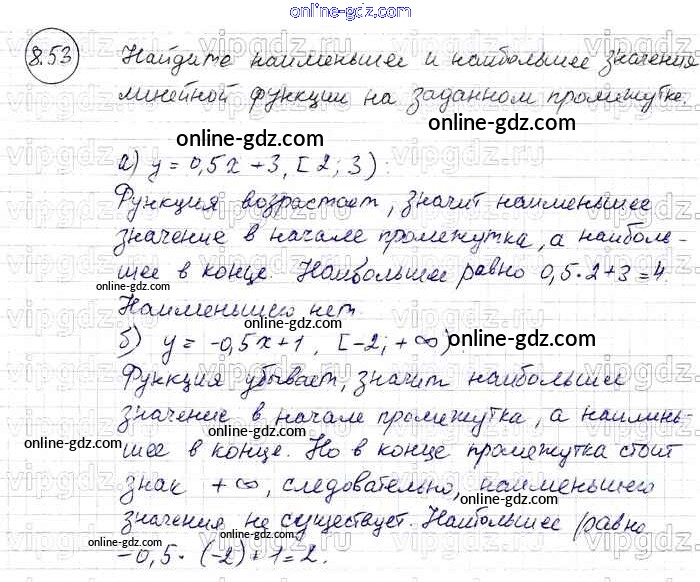 online-gdz.com
8.53
Найдите наименьшее и наибольшее значения
линейной функции на заданном промежутке.
online-gdz.com online-gdz.com
а) y = 0,5x + 3, [2; 3):
Функция возрастает, значит наименьшее
значение в начале промежутка, а наиболь-
шее в конце. Наибольшее равно 0,5·2+3=4.
Наименьшего нет.
online-gdz.com
б) y = -0,5x+1, [-2; +∞):
Функция убывает, значит наибольшее
значение в начале промежутка, а наимень-
online-gdz.com online-gdz.com
шее в конце. Но в конце промежутка стоит
знак +∞, следовательно, наименьшего
online-gdz.com
значения не существует. Наибольшее равно
-0,5·(-2)+1=2.
online-gdz.com online-gdz.com